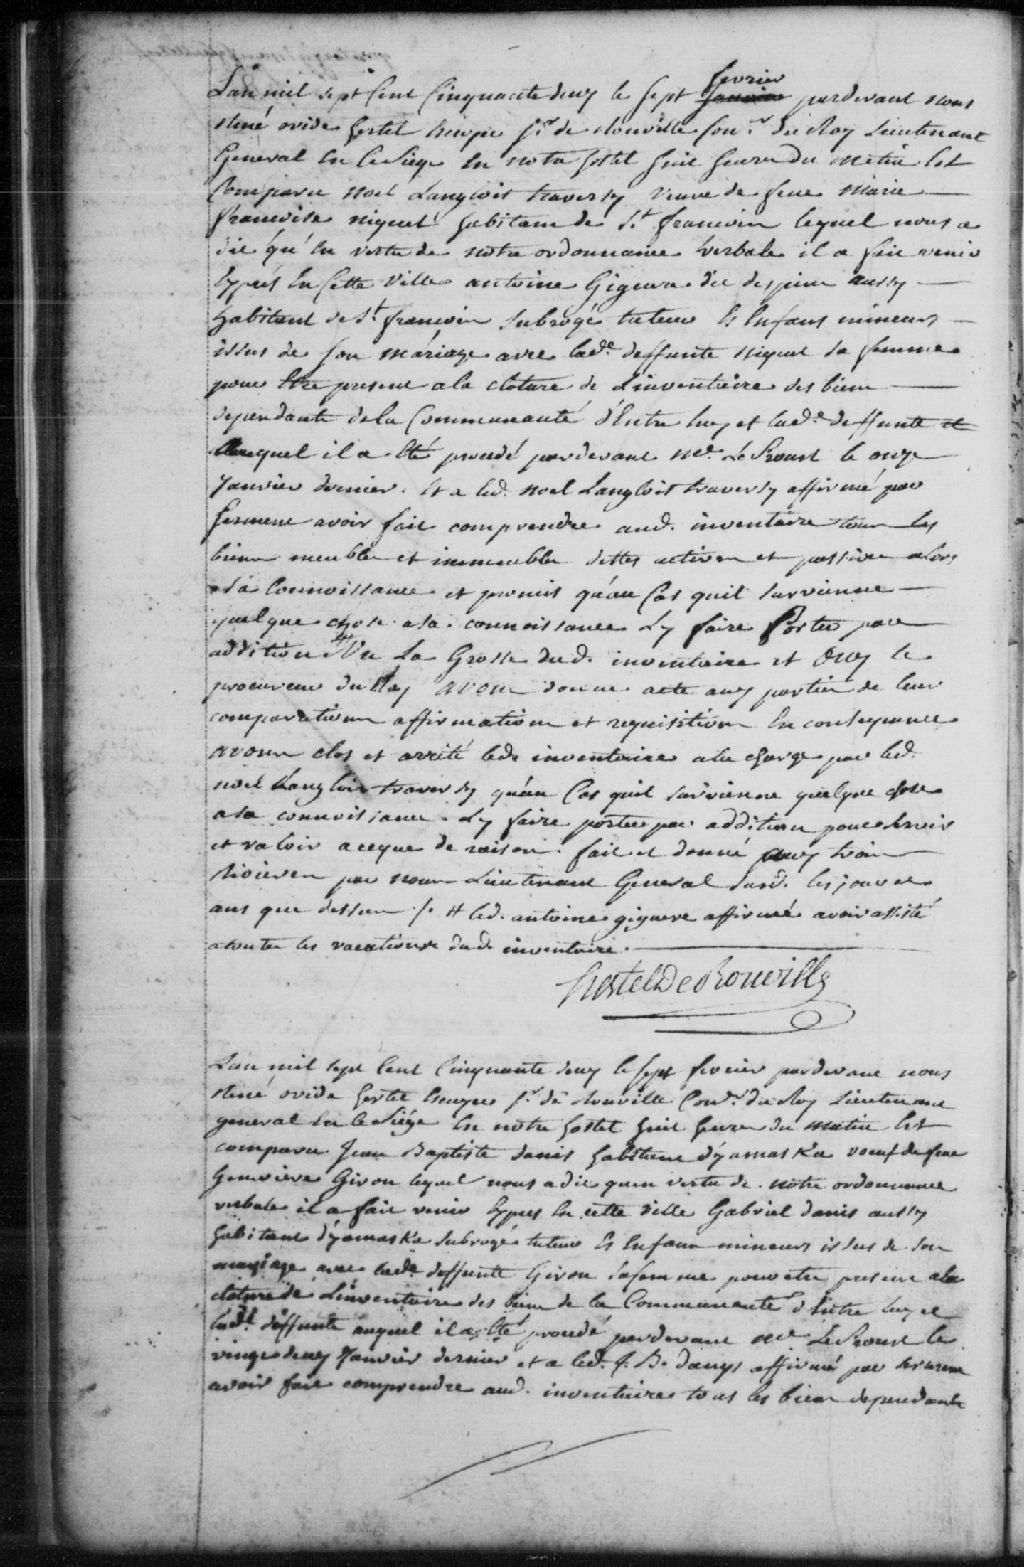 fevrier
L'an mil sept Cent Cinquante deux le sept janvier pardevant nous
René ovide hertel Ecuyer sr. de Rouville Conser. du Roy Lieutenant
General En ce Siege En notre hostel huit heures du matin Est
Comparu noel Langlois traversy veuve de feue Marie
francoise niquet habitant de St. francois lequel nous a
dit qu'en vertu de notre ordonnance verbale il a fait venir
Expres En Cette Ville antoine Giguere dit despins aussy
habitant de St. francois Subrogé tuteur Es Enfans mineurs
issus de son mariage avec lade. deffunte niquet sa femme
pour Etre present a la cloture de L'inventaire des biens
dependants de la Communauté d'Entre luy et lade. deffunte et
auquel il a Eté procedé pardevant Me. Le Proust le onze
Janvier dernier. Et a led. noel Langlois traversy affirmé par
serment avoir fait comprendre aud. inventaire tous les
biens meubles et immeubles dettes actives et passives alors
a sa Connoissance et promis qu'au Cas quil survienne
quelque chose a sa connoissance L'y faire Porter par
addition # Vu La Grosse dud. inventaire et Ouy le
procureur du Roy avons donné acte aux parties de leurs
comparutions affirmations et requisitions En consequence
avons clos et arreté led. inventaire a la charge par led.
noel Langlois traversy qu'au Cas quil survienne quelque chose
a sa connoissance L'y faire porter par addition pour servir
et valoir a ce que de raison. fait et donné aux trois
Rivieres par nous Lieutenant General susd. les jour et
ans que dessus /. # led. antoine giguere affirmé avoir assisté
a toutes les vacations dud. inventaire.
Hertel De Rouville
L'an mil sept Cent Cinquante deux le sept fevrier pardevant nous
René ovide hertel Ecuyer sr. de Rouville Coner. du Roy Lieutenant
general En ce Siége En notre hostel huit heures du matin Est
comparu Jean Baptiste danis habitant d'yamaska veuf de feue
Genevieve Giron lequel nous a dit quen vertu de notre ordonnance
verbale il a fait venir Expres En cette ville Gabriel danis aussy
habitant d'yamaska subrogé tuteur Es Enfans mineurs issus de son
mariage avec lade. deffunte Giron sa femme pour etre present a la
cloture de L'inventaire des biens de la Communauté d'Entre luy et
lade. deffunte auquel il a Eté procedé pardevant Me. Le Proust le
vingt deux Janvier dernier et a led. J. B. danys affirmé par serment
avoir fait comprendre aud. inventaire tous les biens dependants